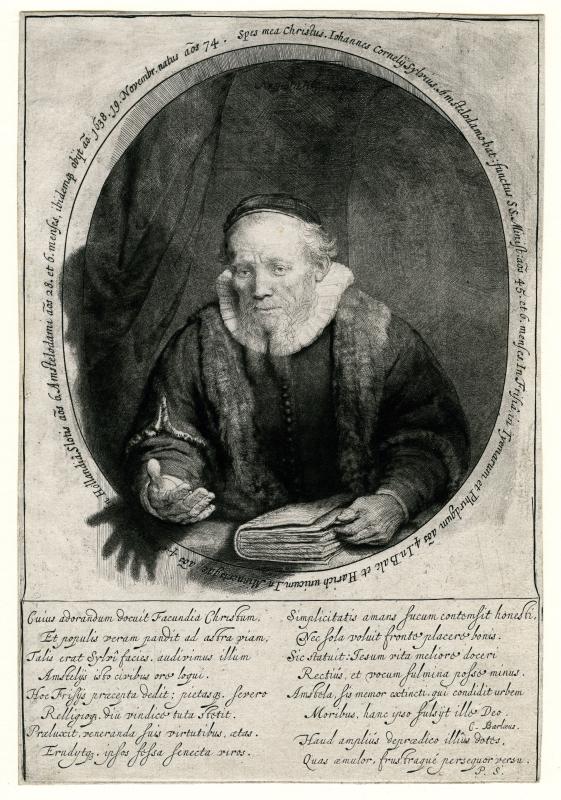 Spes mea Christus. Iohannes Cornelij Sylvius, Amstelodamo-bat: functus S.S. Minist: aōs 45. et 6. menses. In Frisia in Tjemarum et Phirdgum aōs 4. In Balc et Harich unicum. In Minnertsgae aōs 4. Slotis aōs 6. Amstelodami aōs 28. et 6. menses, ibidemq3 obijt aō 1638. 19. Novembr. natus aōs 74.
Cuius adorandum docuit Facundia Christum,
Et populis veram pandit ad astra viam,
Talis erat Sylvî facies. audivimus illum
Amstelijs isto civibus ore loqui.
Hoc Frisijs præcepta dedit; pietasq3. severo
Relligioq3. diu vindice tuta stetit.
Præluxit, veneranda suis virtutibus, ætas.
Erudytq3. ipsos fessa senecta viros.
Simplicitatis amans fucum contemsit honesti,
Nec sola voluit fronte placere bonis.
Sic statuit: Iesum vita meliore doceri
Rectius, et vocum fulmina posse minus.
Amstela, sis memor extincti. qui condidit urbem
Moribus, hanc ipso fulsijt ille Deo.
C. Barleus.
Haud ampliús deprædico illius dotes,
Quas æmulor, frustraque persequor versu.
P. S.